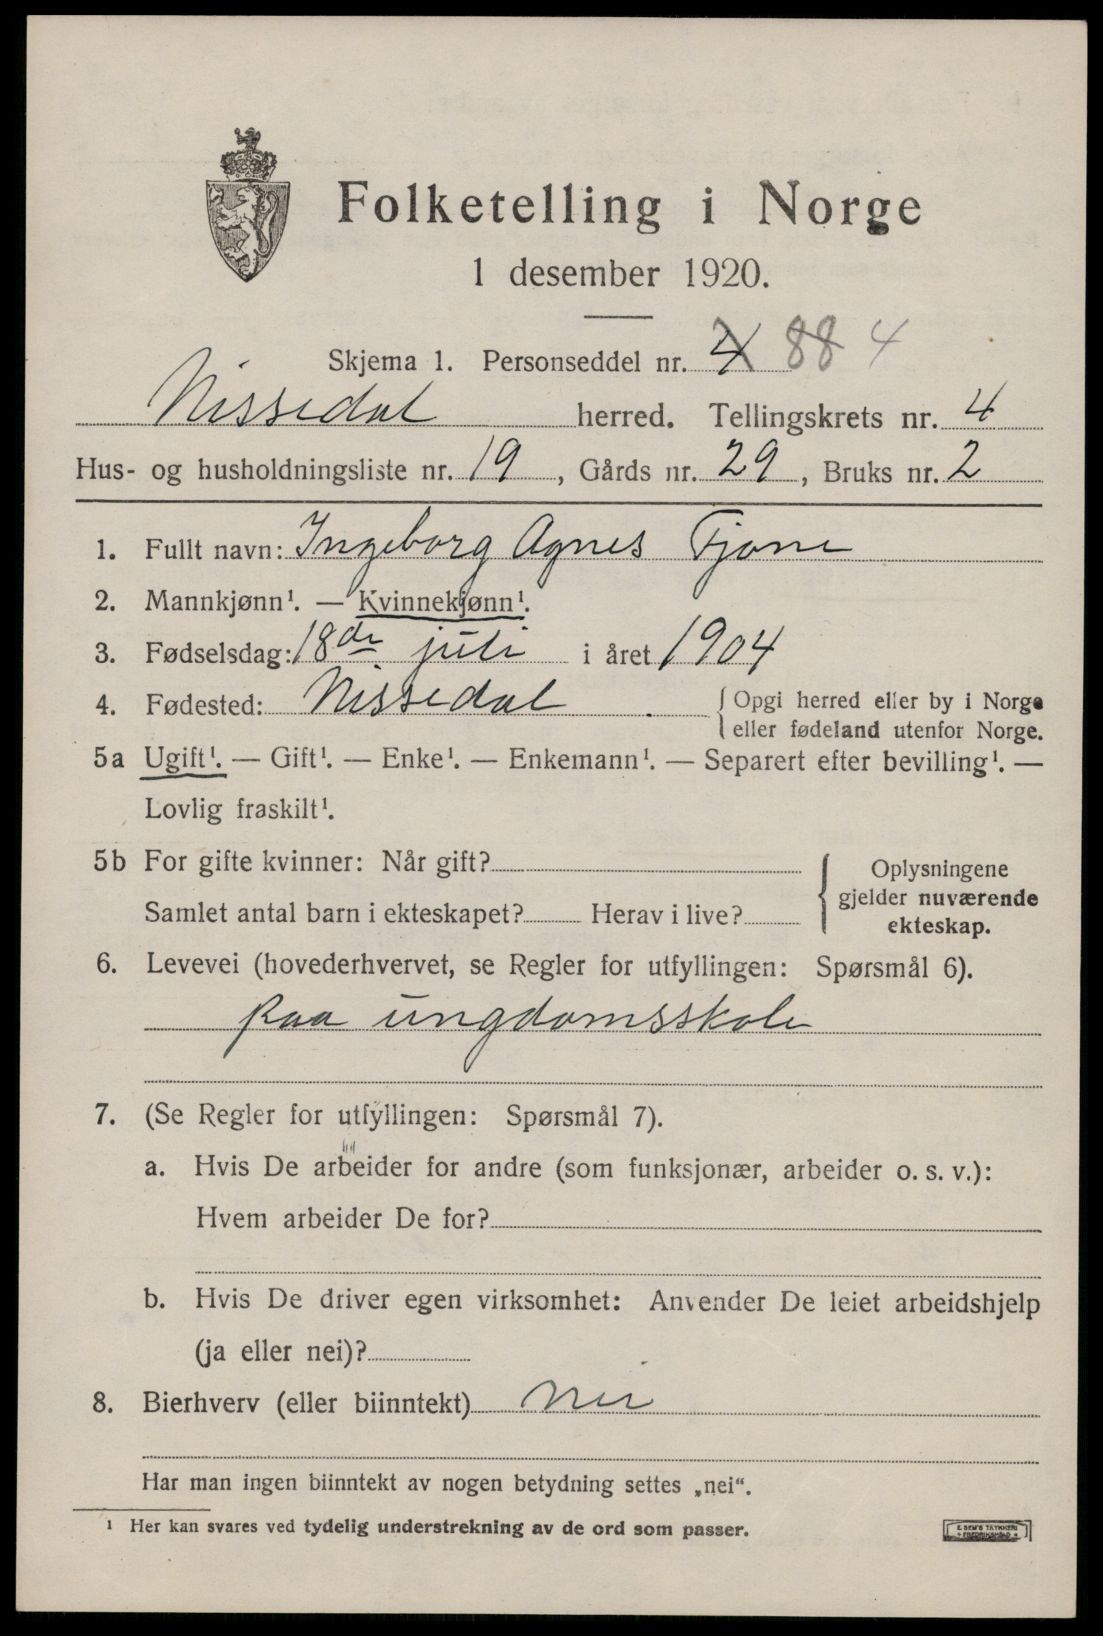 Folketelling i Norge
1 desember 1920.
Skjema 1. Personseddel nr. 4 88 4
Nissedal herred. Tellingskrets nr. 4
Hus- og husholdningsliste nr. 19, Gårds nr. 29, Bruks nr. 2
1. Fullt navn: Ingeborg Agnes Tjone
2. Mannkjønn¹. — Kvinnekjønn¹.
3. Fødselsdag: 18de juli i året 1904
4. Fødested: Nissedal { Opgi herred eller by i Norge
eller fødeland utenfor Norge.
5a Ugift¹. — Gift¹. — Enke¹. — Enkemann¹. — Separert efter bevilling¹. —
Lovlig fraskilt¹.
5b For gifte kvinner: Når gift?
Samlet antal barn i ekteskapet? Herav i live?
Oplysningene
gjelder nuværende
ekteskap.
6. Levevei (hovederhvervet, se Regler for utfyllingen: Spørsmål 6).
paa ungdomsskole
7. (Se Regler for utfyllingen: Spørsmål 7).
a. Hvis De arbeider for andre (som funksjonær, arbeider o. s. v.):
Hvem arbeider De for?
b. Hvis De driver egen virksomhet: Anvender De leiet arbeidshjelp
(ja eller nei)?
8. Bierhverv (eller biinntekt) Nei
Har man ingen biinntekt av nogen betydning settes „nei“.
¹ Her kan svares ved tydelig understrekning av de ord som passer.
E. SEM'S TRYKKERI
FREDRIKSHALD